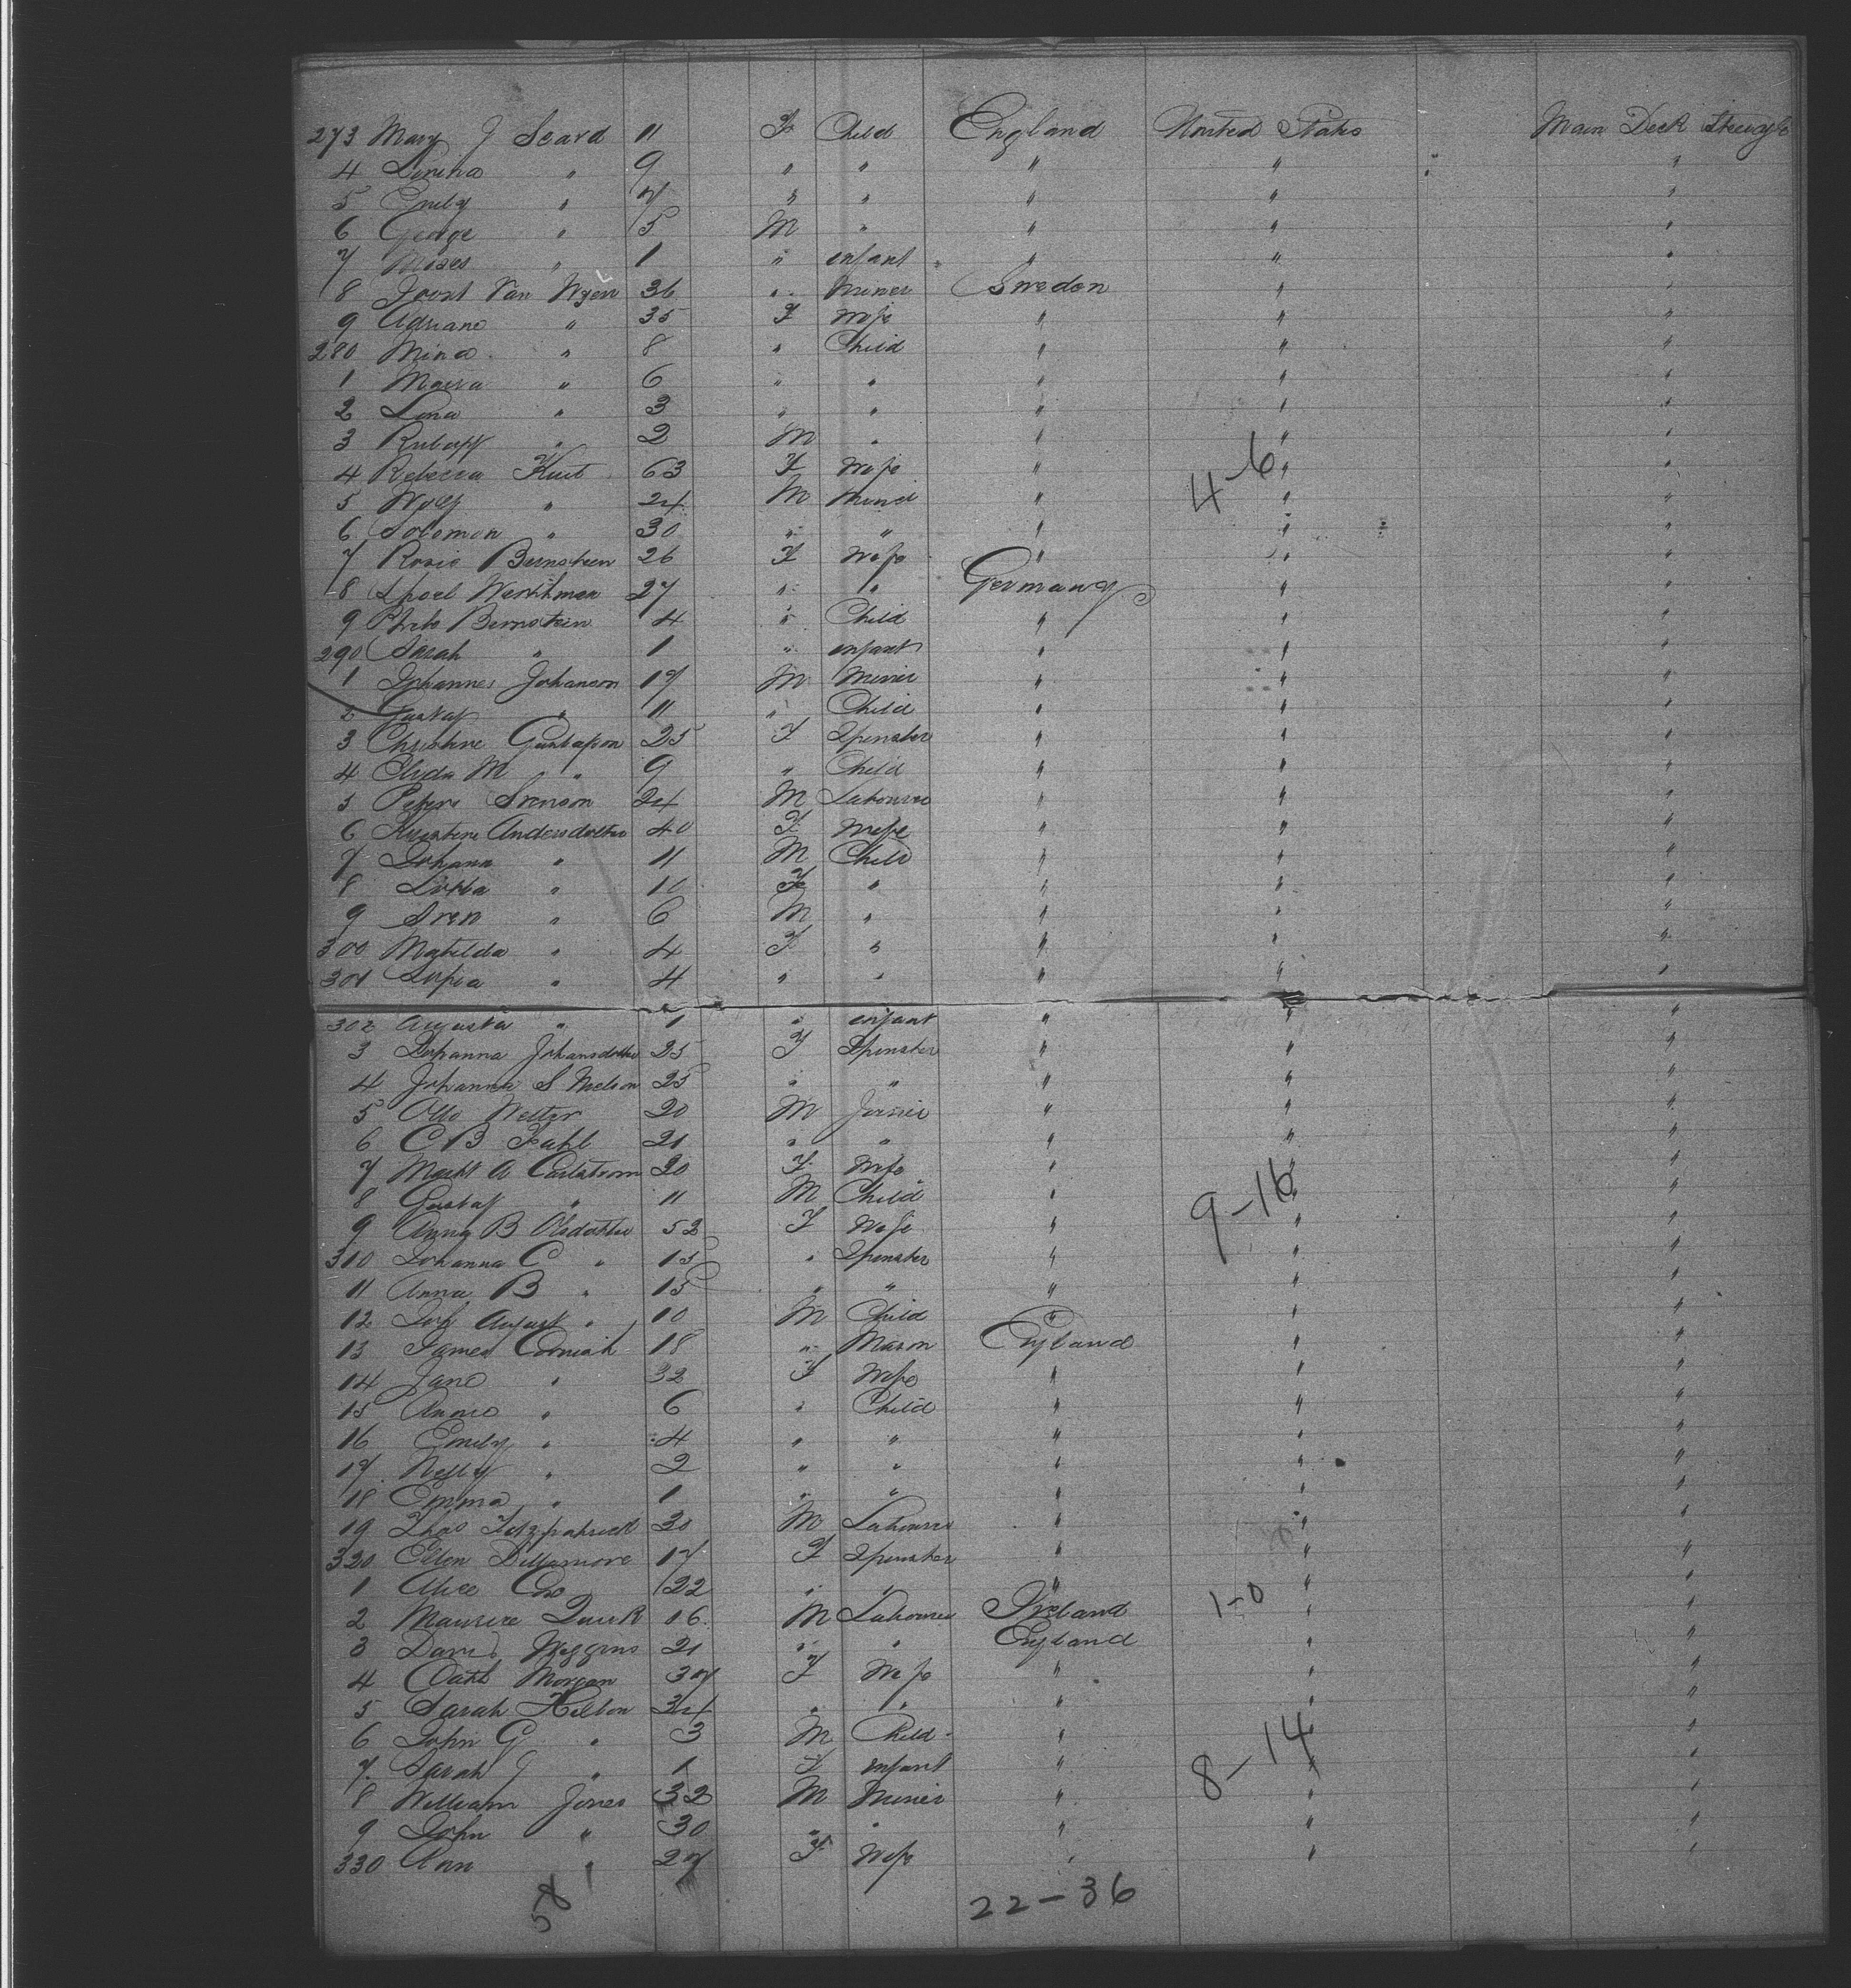 273 Mary J Seard 11 F Child England United States Main Deck Steerage
4 " 9 " " " " "
5 Emily " 7 " " " " "
6 George " 5 M " " " "
7 Moses " 1 " infant " " "
8 Joost Van 36 " Miner Sweden " "
9 Adriane " 35 F Wife " " "
280 Mina " 8 " Child " " "
1 " 6 " " " " "
2 Lena " 3 " " " " "
3 " 2 M " " " "
4 Rebecca 63 F Wife " " "
4-6
5 Wolf " 24 M Miner " " "
6 Solomon " 30 " " " " "
7 Rosie Bernstein 26 F Wife " " "
8 27 " " Germany " "
9 Bernstein 4 " Child " " "
290 Sarah " 1 " infant " " "
1 Johannes Johanson 17 M Miner " " "
2 Gustaf " 11 " Child " " "
3 Christine Gustafson 25 F Spinster " " "
4 M " 9 " Child " " "
5 Svenson 24 M Labourer " " "
6 Andersdotter 40 F Wife " " "
7 Johann " 11 M Child " " "
8 " 10 F " " " "
9 Sven " 6 M " " " "
300 Matilda " 4 F " " " "
301 Sofia " 4 " " " " "
302 Augusta " 1 " infant " " "
3 Johanna Johansdotter 25 F Spinster " " "
4 Johanna S Nielson 25 " " " " "
5 Otto 20 M Joiner " " "
6 C B 21 " " " " "
7 A Carlstrom 20 F Wife " " "
8 Gustaf " 11 M Child " " "
9-16
9 Anna B Olsdotter 52 F Wife " " "
310 Johanna C " 15 " Spinster " " "
11 Anna B " 15 " " " " "
12 Joh August " 10 M Child " " "
13 James Cornish 18 " Mason England " "
14 Jane " 32 F Wife " " "
15 Annie " 6 " Child " " "
16 Emily " 4 " " " " "
17 Nelly " 2 " " " " "
18 Emma " 1 " " " " "
19 Thos Fitzpatrick 30 M Labourer " " "
320 Ellen 17 F Spinster " " "
1 Alice 22 " " " " "
2 Maurice Quirk 16 M Labourer Ireland 1-0 " "
3 David Wiggins 21 " " England " "
4 Cath Morgan 37 F Wife " " "
5 Sarah Hilton 34 " " " " "
6 John G " 3 M Child " " "
7 Sarah J " 1 F infant " " "
8-14
8 William Jones 32 M Miner " " "
9 John " 30 " " " " "
330 Ann " 27 F Wife " " "
58
22-36